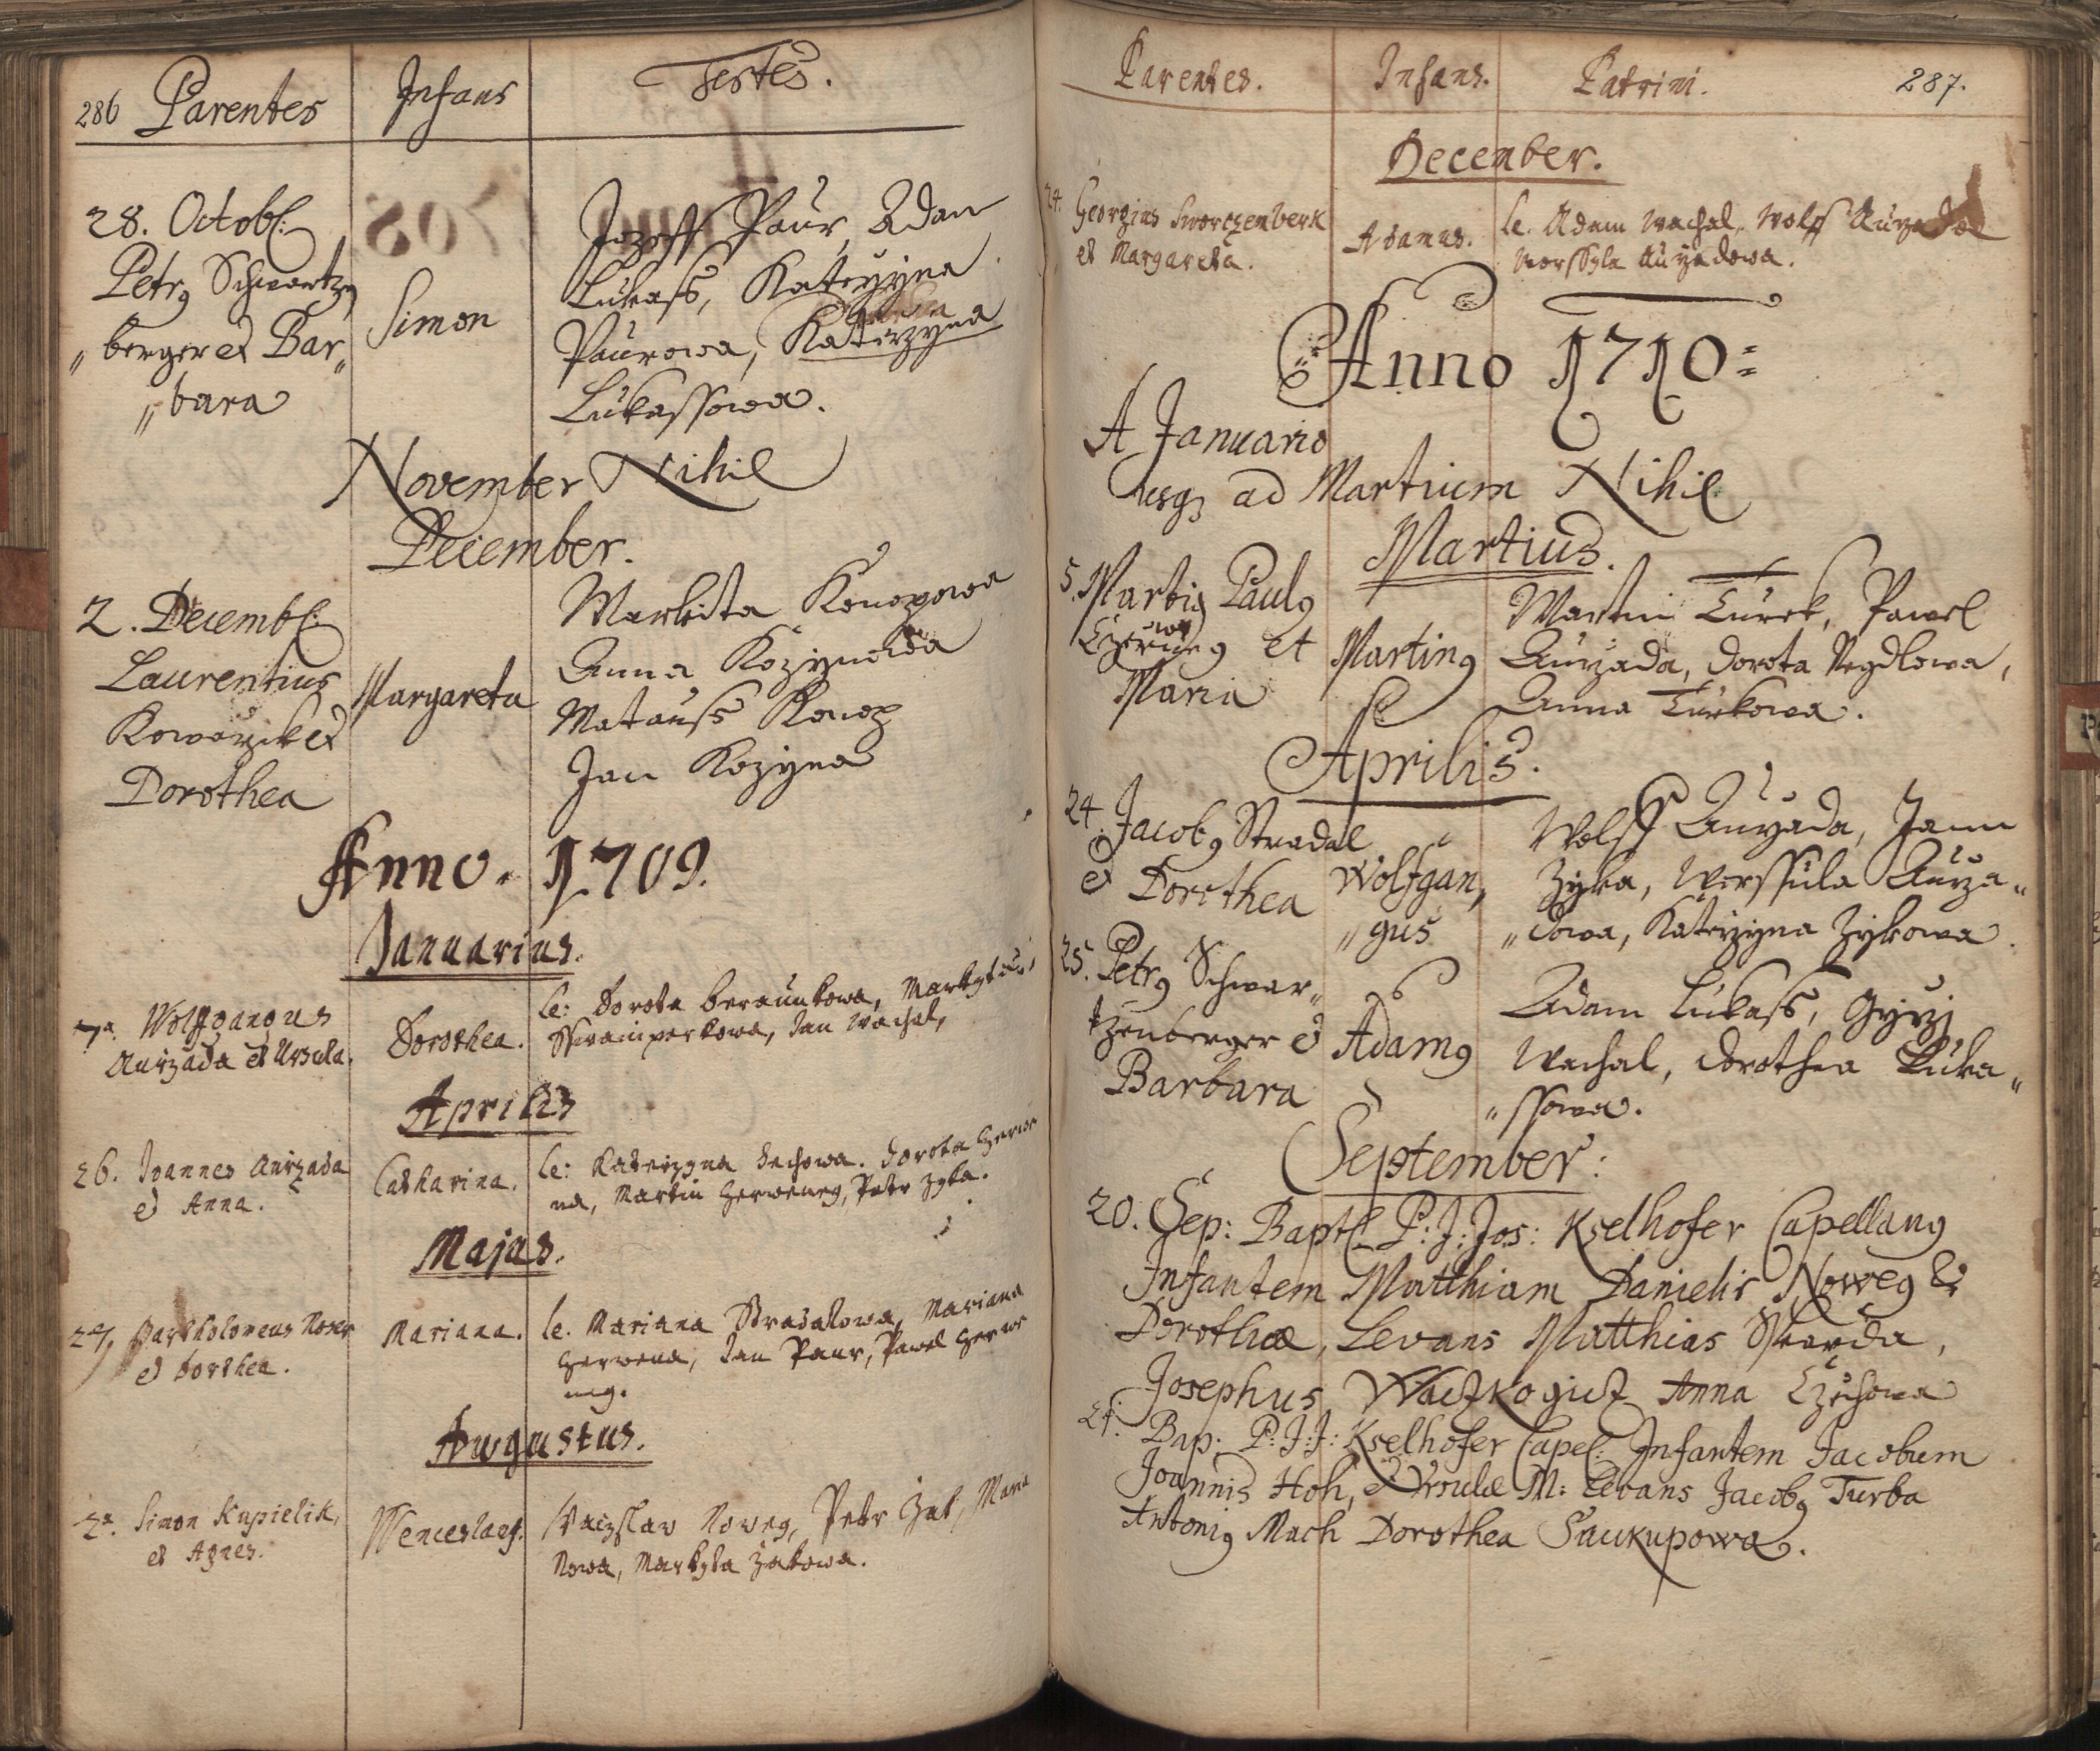 286 Parentes
Infans
Testes.
28. Octobr:
Petrg Schwartzn
„berger et Bar„
„bara
Simon
Jozeff Paur, Adam
Lukass, Katerzyna
Paurowa, Katerzyna
Lukassowa.
November Nihil
December.
2. Decembr:
Laurentius
Kowarzik et
Dorothea
Margareta
Markita Konopowa
Anna Kozynowa
Matauss Konop
Jan Kozyna
Anno. 1709.
Januarius.
7a Wolfgangus
Aurzada et Ursula.
Dorothea.
le: Dorota beraunkowa, Markyta
Jan Wachal,
Aprilis
26. Joannes Aurzada
et Anna.
Catharina.
le: Katerzyna Dorota Czerwe
na, Martin Czerweneg, Petr Zyka.
Majus.
Bartholomeus Nowe
et Dorthea.
Mariana.
le. Mariana Stradalowa, Mariana
Czerwena, Jan Paur, Pawel Czerwe
neg.
Augustus.
2a. Simon Kupielik,
et Agnes.
Wenceslaus.
Waczslaw Noweg, Petr Zak, Maria
Nowa, Markyta Zakowa.
Parentes.
Infans.
Patrini.
287.
December.
24. Georgius Sworczenberk
et Margareta.
Adamus.
le. Adam Wachal, Wolff Aurzada
Worssyla Aurzadowa.
Anno 1710
A Januario
usq ad Martium Nihil
Martius.
5. Martig Paulg
Czerweng et
Maria
Marting
Martin Turek, Pawel
Aurzada, Dorota Negdlowa,
Anna Turkowa.
Aprilis.
24. Jacobg Stradal
et Dorothea
Wolfgan,
„gus
Wolff Aurzada, Jann
Zyka, Worssula Aurza„
„dowa, Katerzyna Zykowa.
25. Petrg Schwar„
tzenberger et
Barbara
Adamg
Adam Lukass, Gyrzj
Wachal, Dorothea Luka„
„ssowa.
September:
20. Sep: Bapt: P: J: Jos: Kselhofer Capellang
Infantem Matthiam Danielis Noweg &
Dorotheæ, Levans Matthias Skarda,
Josephus Anna Czechowa
Bap: P: J: J: Kselhofer Capel: Infantem Jacobum
Joannis Hoh, et Ursulæ M: Levans Jacobg Turba
Antonig Mach Dorothea Saukupowa.